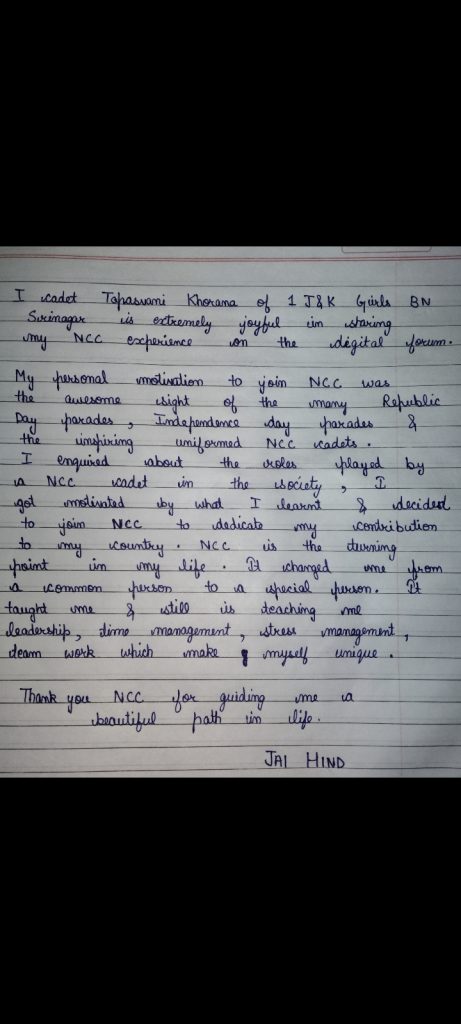 I cadet Tapasvani Khorana of 1 J&K Girls BN
Srinagar is extremely joyful in staring
my NCC experience on the digital forum.
My personal motivation to join NCC was
the awesome sight of the many Republic
Day parades, Independence day parades &
the inspiring uniformed NCC cadets.
I enquired about the roles played by
a NCC cadet in the society, I
got motivated by what I learnt & decided
to join NCC to dedicate my contribution
to my country. NCC is the turning
point in my life. It changed me from
a common person to a special person. It
taught me & still is teaching me
leadership, time management, stress management,
team work which make myself unique.
Thank you NCC for guiding me a
beautiful path in life.
JAI HIND